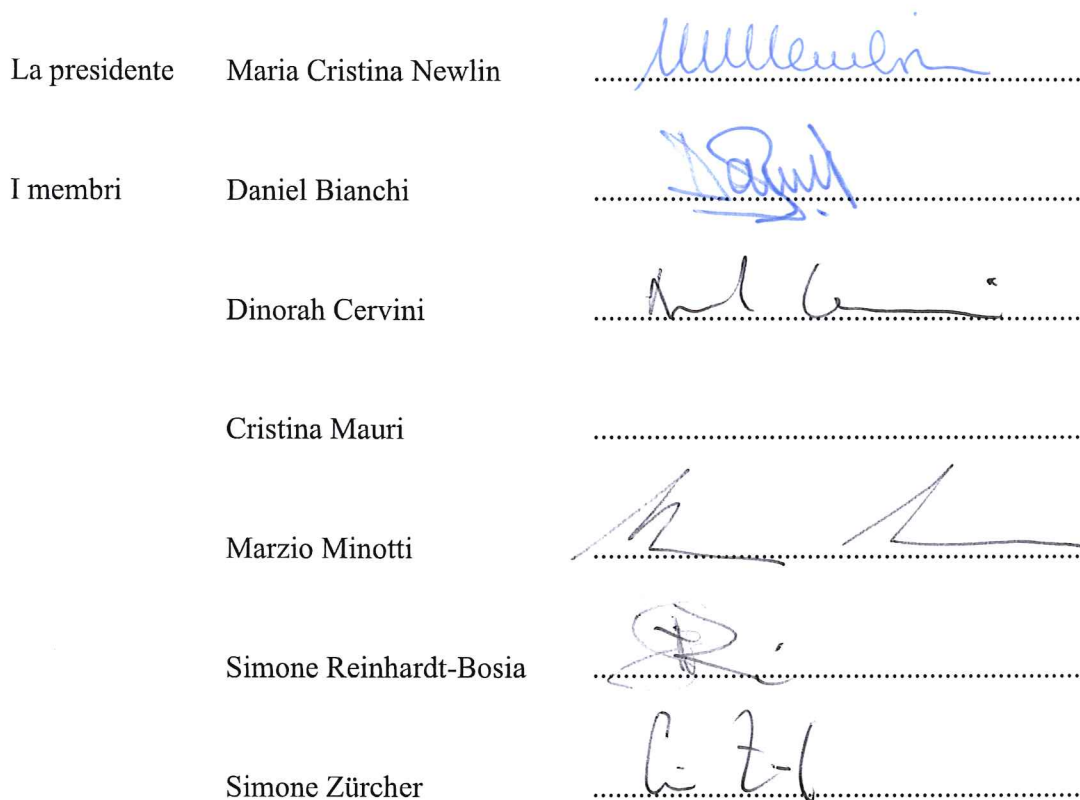 La presidente Maria Cristina Newlin
I membri Daniel Bianchi
Dinorah Cervini
Cristina Mauri
Marzio Minotti
Simone Reinhardt-Bosia
Simone Zürcher